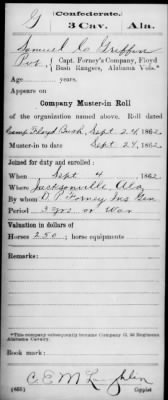 Confederate.
G 3 Cav. Ala.
Samuel C Griffin
Pvt, Capt. Forney's Company, Floyd
Bush Rangers, Alabama Vols.*
Age years.
Appears on
Company Muster-in Roll
of the organization named above. Roll dated
Camp Floyd Bush, Sept 24, 1862.
Muster-in to date Sept 24, 1862.
Joined for duty and enrolled:
When Sept 4, 1862.
Where Jacksonville, Ala
By whom D. P. Forney Ins Gen
Period 3 yrs or War
Valuation in dollars of
Horses 250; horse equipments
Remarks:
*This company subsequently became Company G, 3d Regiment
Alabama Cavalry.
Book mark:
C. E. McLaughlin
(655) Copyist